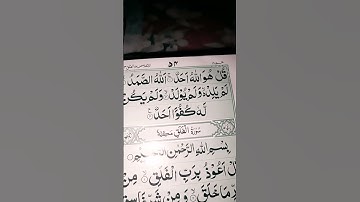 ٥٣
قُلْ هُوَ اللّٰهُ اَحَدٌ ۚ اَللّٰهُ الصَّمَدُ
لَمْ يَلِدْ ۙ وَلَمْ يُوْلَدْ ۙ وَلَمْ يَكُنْ
لَّهٗ كُفُوًا اَحَدٌ
سُوْرَةُ الْفَلَقِ مَكِّيَّةٌ
بِسْمِ اللّٰهِ الرَّحْمٰنِ الرَّحِيْمِ
قُلْ اَعُوْذُ بِرَبِّ الْفَلَقِ ۙ مِنْ
مَا خَلَقَ ۙ وَمِنْ شَرِّ